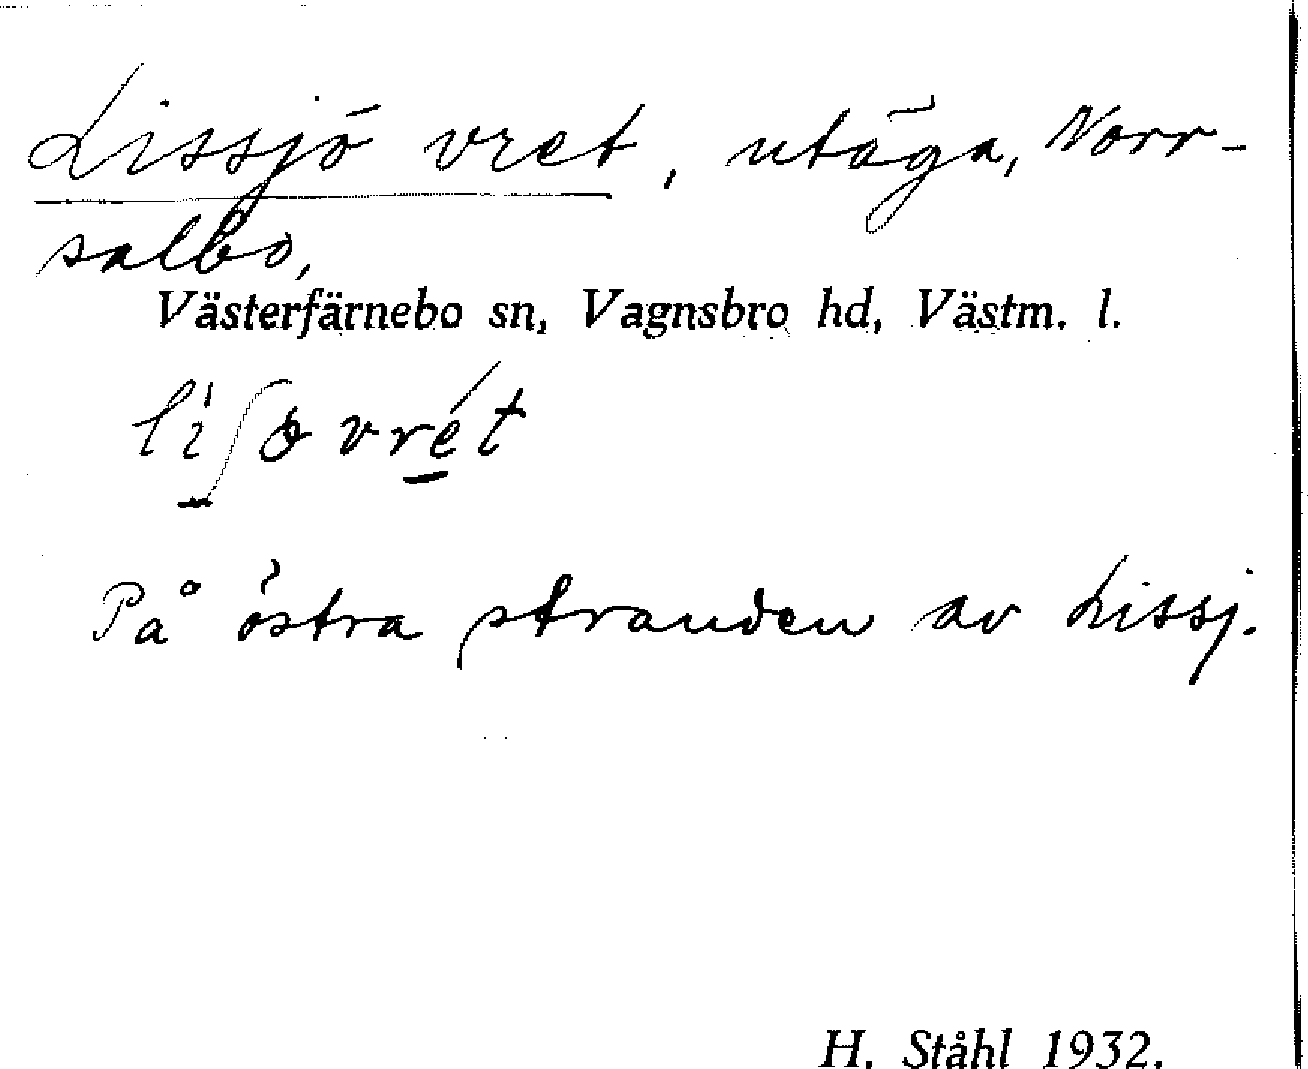 Lissjö vret, utäga, Norr-
salbo,
Västerfärnebo sn, Vagnsbro hd, Västm. l.
På östra stranden av Lissj.
H. Ståhl 1932.